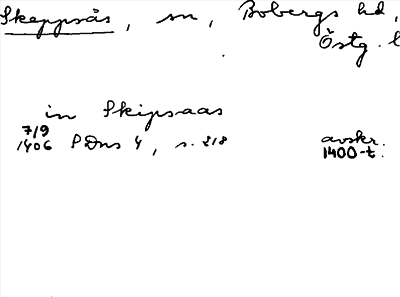 Skeppsås, sn, Bobergs hd,
Östg. l
in Skipsaas
7/9
1406 SDns 4, s. 218 avskr.
1400-t.